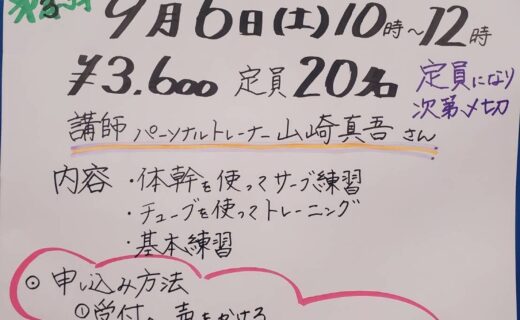 9月6日(土)10時~12時
¥3.600 定員20名 定員になり
次第〆切
講師 パーソナルトレーナー山崎真吾さん
内容 ・体幹を使ってサーブ練習
・チューブを使ってトレーニング
・基本練習
⊙ 申し込み方法
①受付へ声をかける